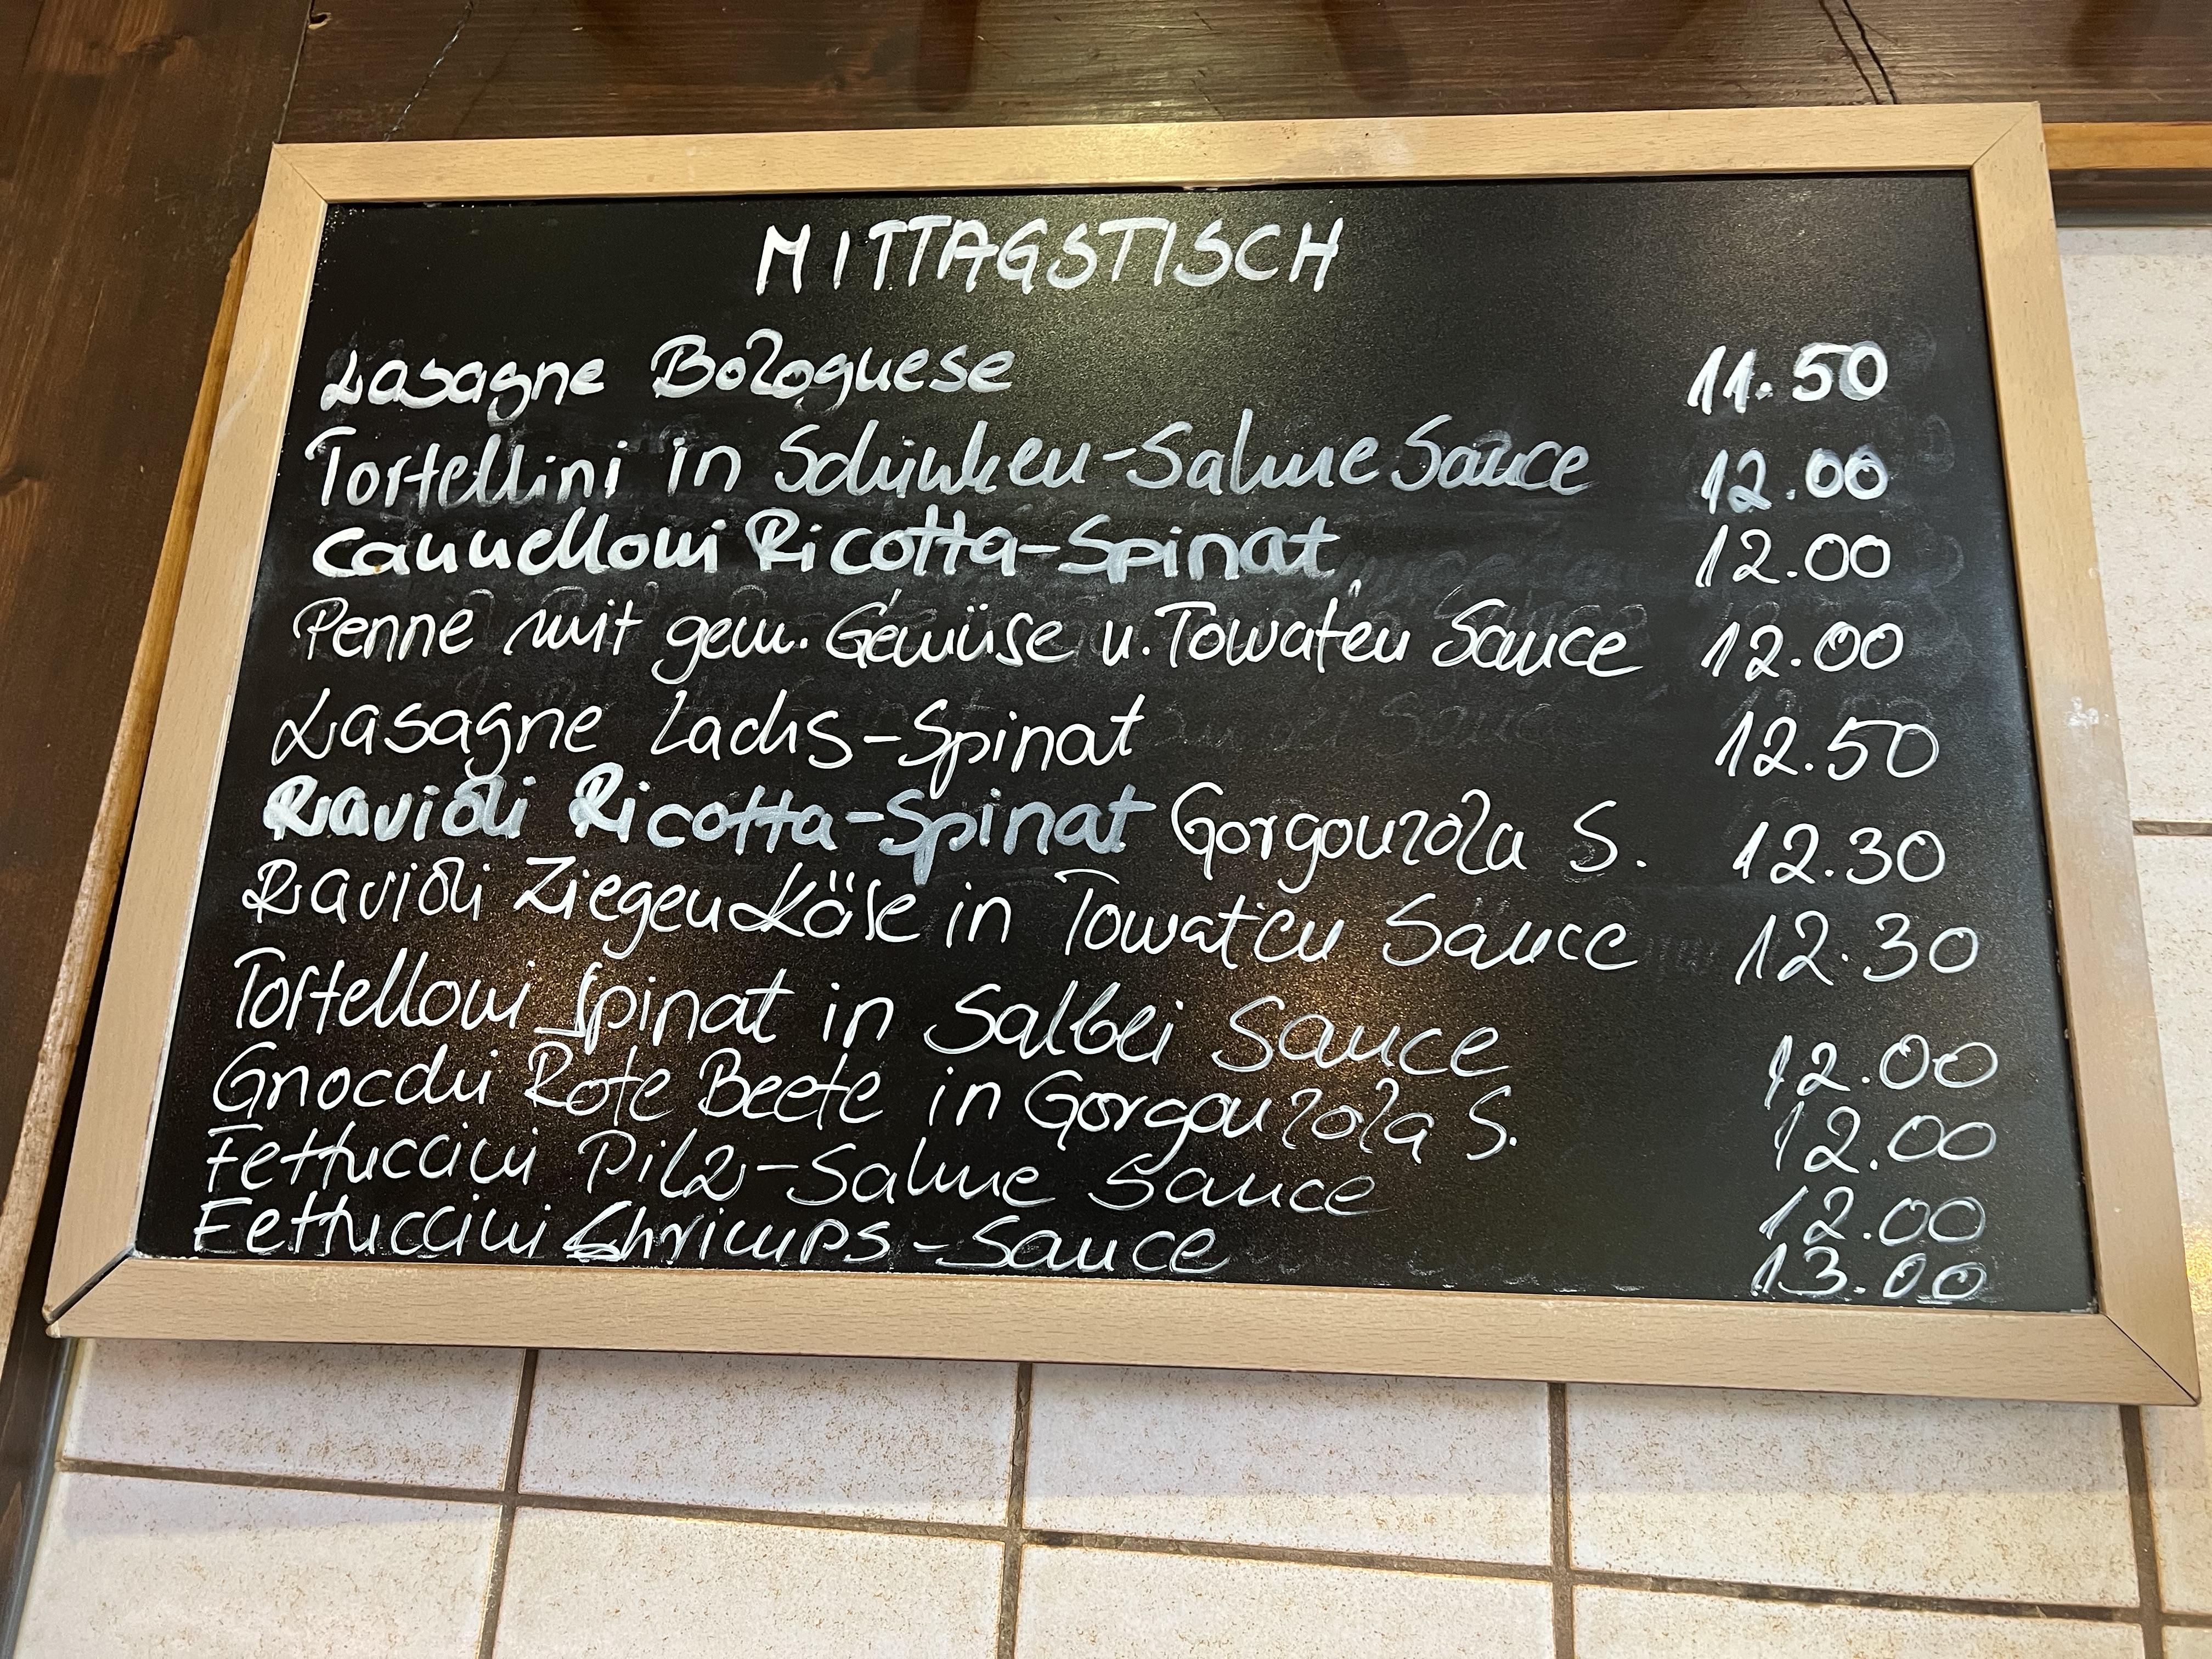 MITTAGSTISCH
Lasagne Bolognese 11.50
Tortellini in Schinken-Sahne Sauce 12.00
Cannelloni Ricotta-Spinat 12.00
Penne mit gem. Gemüse u. Tomaten Sauce 12.00
Lasagne Lachs-Spinat 12.50
Ravioli Ricotta-Spinat Gorgonzola S. 12.30
Ravioli Ziegenkäse in Tomaten Sauce 12.30
Tortelloni Spinat in Salbei Sauce 12.00
Gnocchi Rote Beete in Gorgonzola S. 12.00
Fettuccini Pilz-Sahne Sauce 12.00
Fettuccini Shrimps-Sauce 13.00